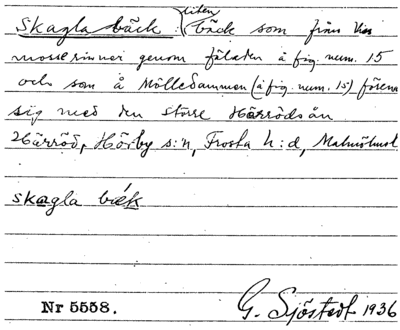 liten
Skagla bäck : bäck som från
mosse rinner genom fäladen å fig. num. 15
och som å Mölledammen (å fig. num. 15) förena
sig med den större Härrödsån
Härröd, Hörby s:n, Frosta h:d, Malmöhus l
skagla bäk
Nr 5558.
G. Sjöstedt 1936